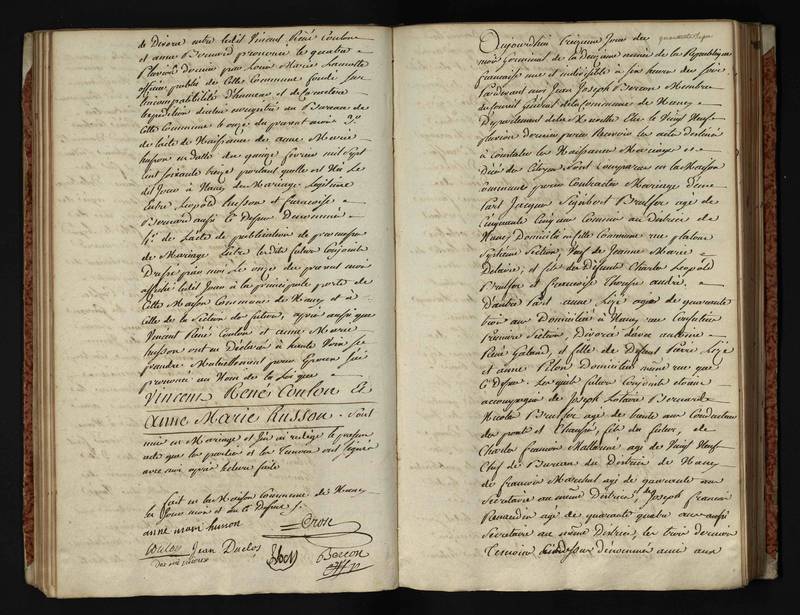 de Divorce entre ledit Vincent René Coulon
et anne Bernard prononcé le quatre
Pluviose dernier par Louis Marie
officier public de Cette Commune fondé sur
incompatibilité d'humeur et de Caractere
Expedition duement enregistré au Bureau de
Cette Commune le onze du present mois 3.°
de l'acte de Naissance de anne Marie
husson en datte du quinze fevrier mil Sept
cent soixante treize portant quelle est Née le
dit Jour à Nancy du Mariage Legitime
Entre Leopold husson et francoise
Bernard aussi Ci Dessus Denommés
4.° de L'acte de publication de promesses
de Mariage Entre lesdits futurs Conjoints
Dressé par moi Le onze du present mois
affiché ledit Jour à la principale porte de
Cette Maison Commune de Nancy et à
Celle de la Section du futur, après aussi que
Vincent René Coulon et anne Marie
husson ont eu Déclaré à haute Voix Se
prendre Mutuellement pour Epoux J'ai
prononcé au Nom de la Loi que
Vincent René Coulon Et
Anne Marie Husson. Sont
unis en Mariage et J'ai rédigé le present
acte que les parties et les Temoins ont Signés
avec moi après lecture faite
fait en la Maison Commune de Nancy
les Jour mois et an ci Dessus
anne marie husson
Coulon Jean Duclos
Berçon
Aujourdhui treizieme Jour du
mois Germinal de la Deuxieme année de la Republique
francaise une et indivisible à Six heures du Soir
Pardevant moi Jean Joseph Berson Membre
du Conseil Général de la Commune de Nancy
Departement de la Meurthe Elu le Vingt Neuf
fluviose dernier pour Recevoir les actes destinés
à Constater les Naissances Mariages et
Décès des Citoyens, Sont Comparus en la Maison
Commune pour Contracter Mariage D'une
Part Jacques Sigisbert Brulfer agé de
Cinquante Cinq ans Commis au District de
Nancy Domicilié en cette Commune rue
Septieme Section, Veuf de Jeanne Marie
Delaire, et fils de Défunts Charles Léopold
Brulfer et françoise Therese andré.
Dautre Part anne Lizé agée de quarante
trois ans Domiciliée à Nancy rue
Premiere Section, Divorcée d'avec antoine
René Galand, et fille de Defunt Pierre Lizé
et anne Pelon Domiciliée même rue que
Ci Dessus. Lesquels futurs Conjoints étoient
accompagnés de Joseph Lotaire Bernard
Nicolas Brulfer agé de trente ans Conducteur
des ponts et Chaussées, fils du futur, de
Charles francois Mallarmé agé de Vingt Neuf
Chef de Bureau du District de Nancy
de francois Marechal agé de quarante ans
Secretaire au même District, de Joseph Francois
Renaudin agé de quarante quatre ans aussi
Secretaire au même District, les trois derniers
Temoins dénommés amis aux